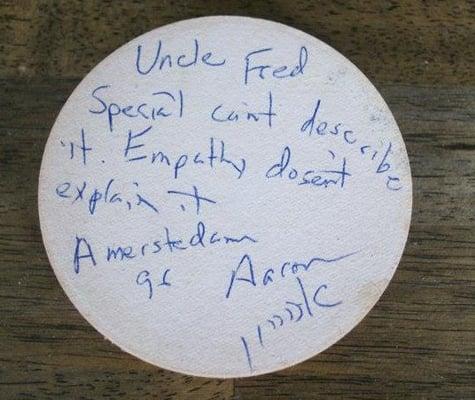 Uncle Fred
Special cain't describe
it. Empathy dosen't
explain it
Amerstedam
96 Aaron